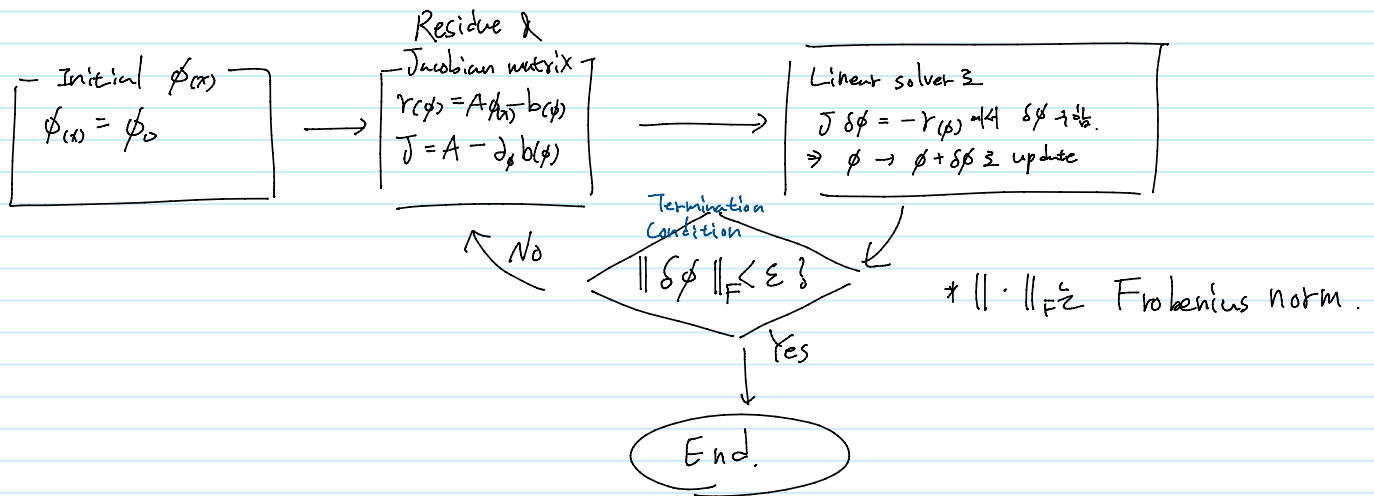 Initial φ(x)
φ(x) = φ₀
Residue &
Jacobian matrix
r(φ) = Aφ(x) - b(φ)
J = A - ∂φ b(φ)
Linear solver로
J δφ = -r(φ) 에서 δφ 구함.
⇒ φ → φ + δφ로 update
Termination
Condition
‖δφ‖F < ε
No
Yes
* ‖·‖F는 Frobenius norm.
End.